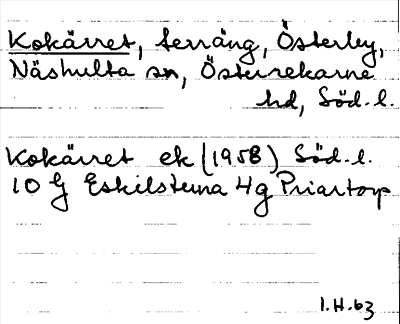 Kokärret, terräng, Österby,
Näshulta sn, Österrekarne
hd, Söd. l.
Kokärret ek (1958) Söd. l.
10 G Eskilstuna 4g Priartorp
I.H. 63